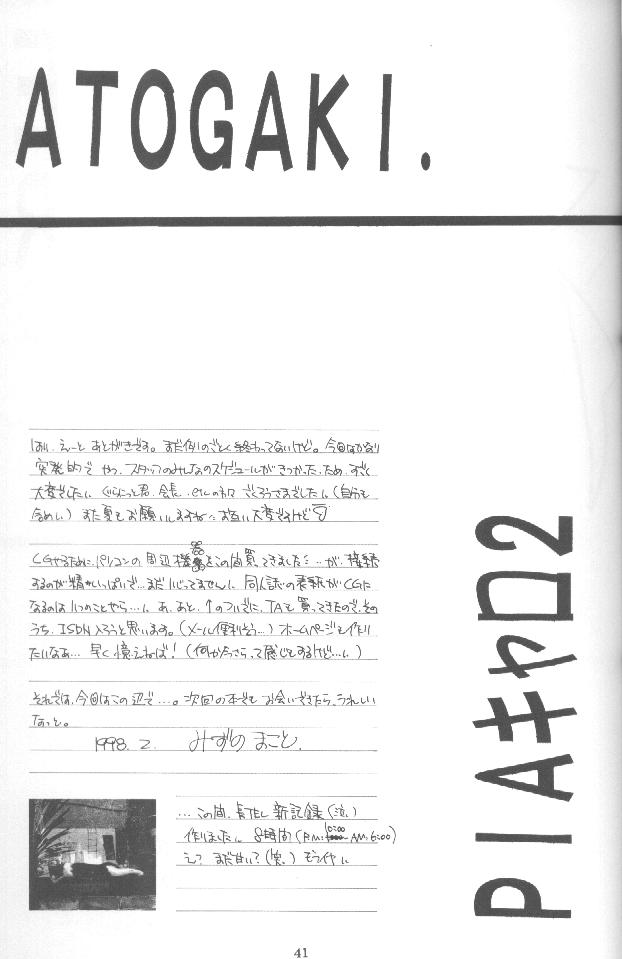 ATOGAKI.
はい、えーと あとがきです。まだ例のごとく終わってないけど。今回かなり
突発的で やつ、スタッフのみんなのスケジュールがきつかったため、すごく
大変でした。ぐらにっと君、会長、etcの方々 ごくろうさまでした。(自分も
含めい) また夏もお願いしますね お互い大変ですけど
CGやるために、パソコンの周辺機器をこの間買ってきました…が、接続
するのが精いっぱいで…まだいじってません。同人誌の表紙がCGに
なるのはいつのことやら…。あ、あと、↑のついでに、TAも買ってきたので、その
うち、ISDN入ろうと思います。(メール便利そう…)ホームページも作り
たいなあ… 早く憶えねば!(何かたっさらって感じもするけど…)
それでは、今回はこの辺で…。次回の本でも お会いできたら、うれしい
なっと。
1998. 2. みずの まこと.
…この間、長TEL 新記録(泣)
作りました。8時間(PM:10:00 AM:6:00)
えっ?まだ甘い?(笑)
PIAキャロ2
41